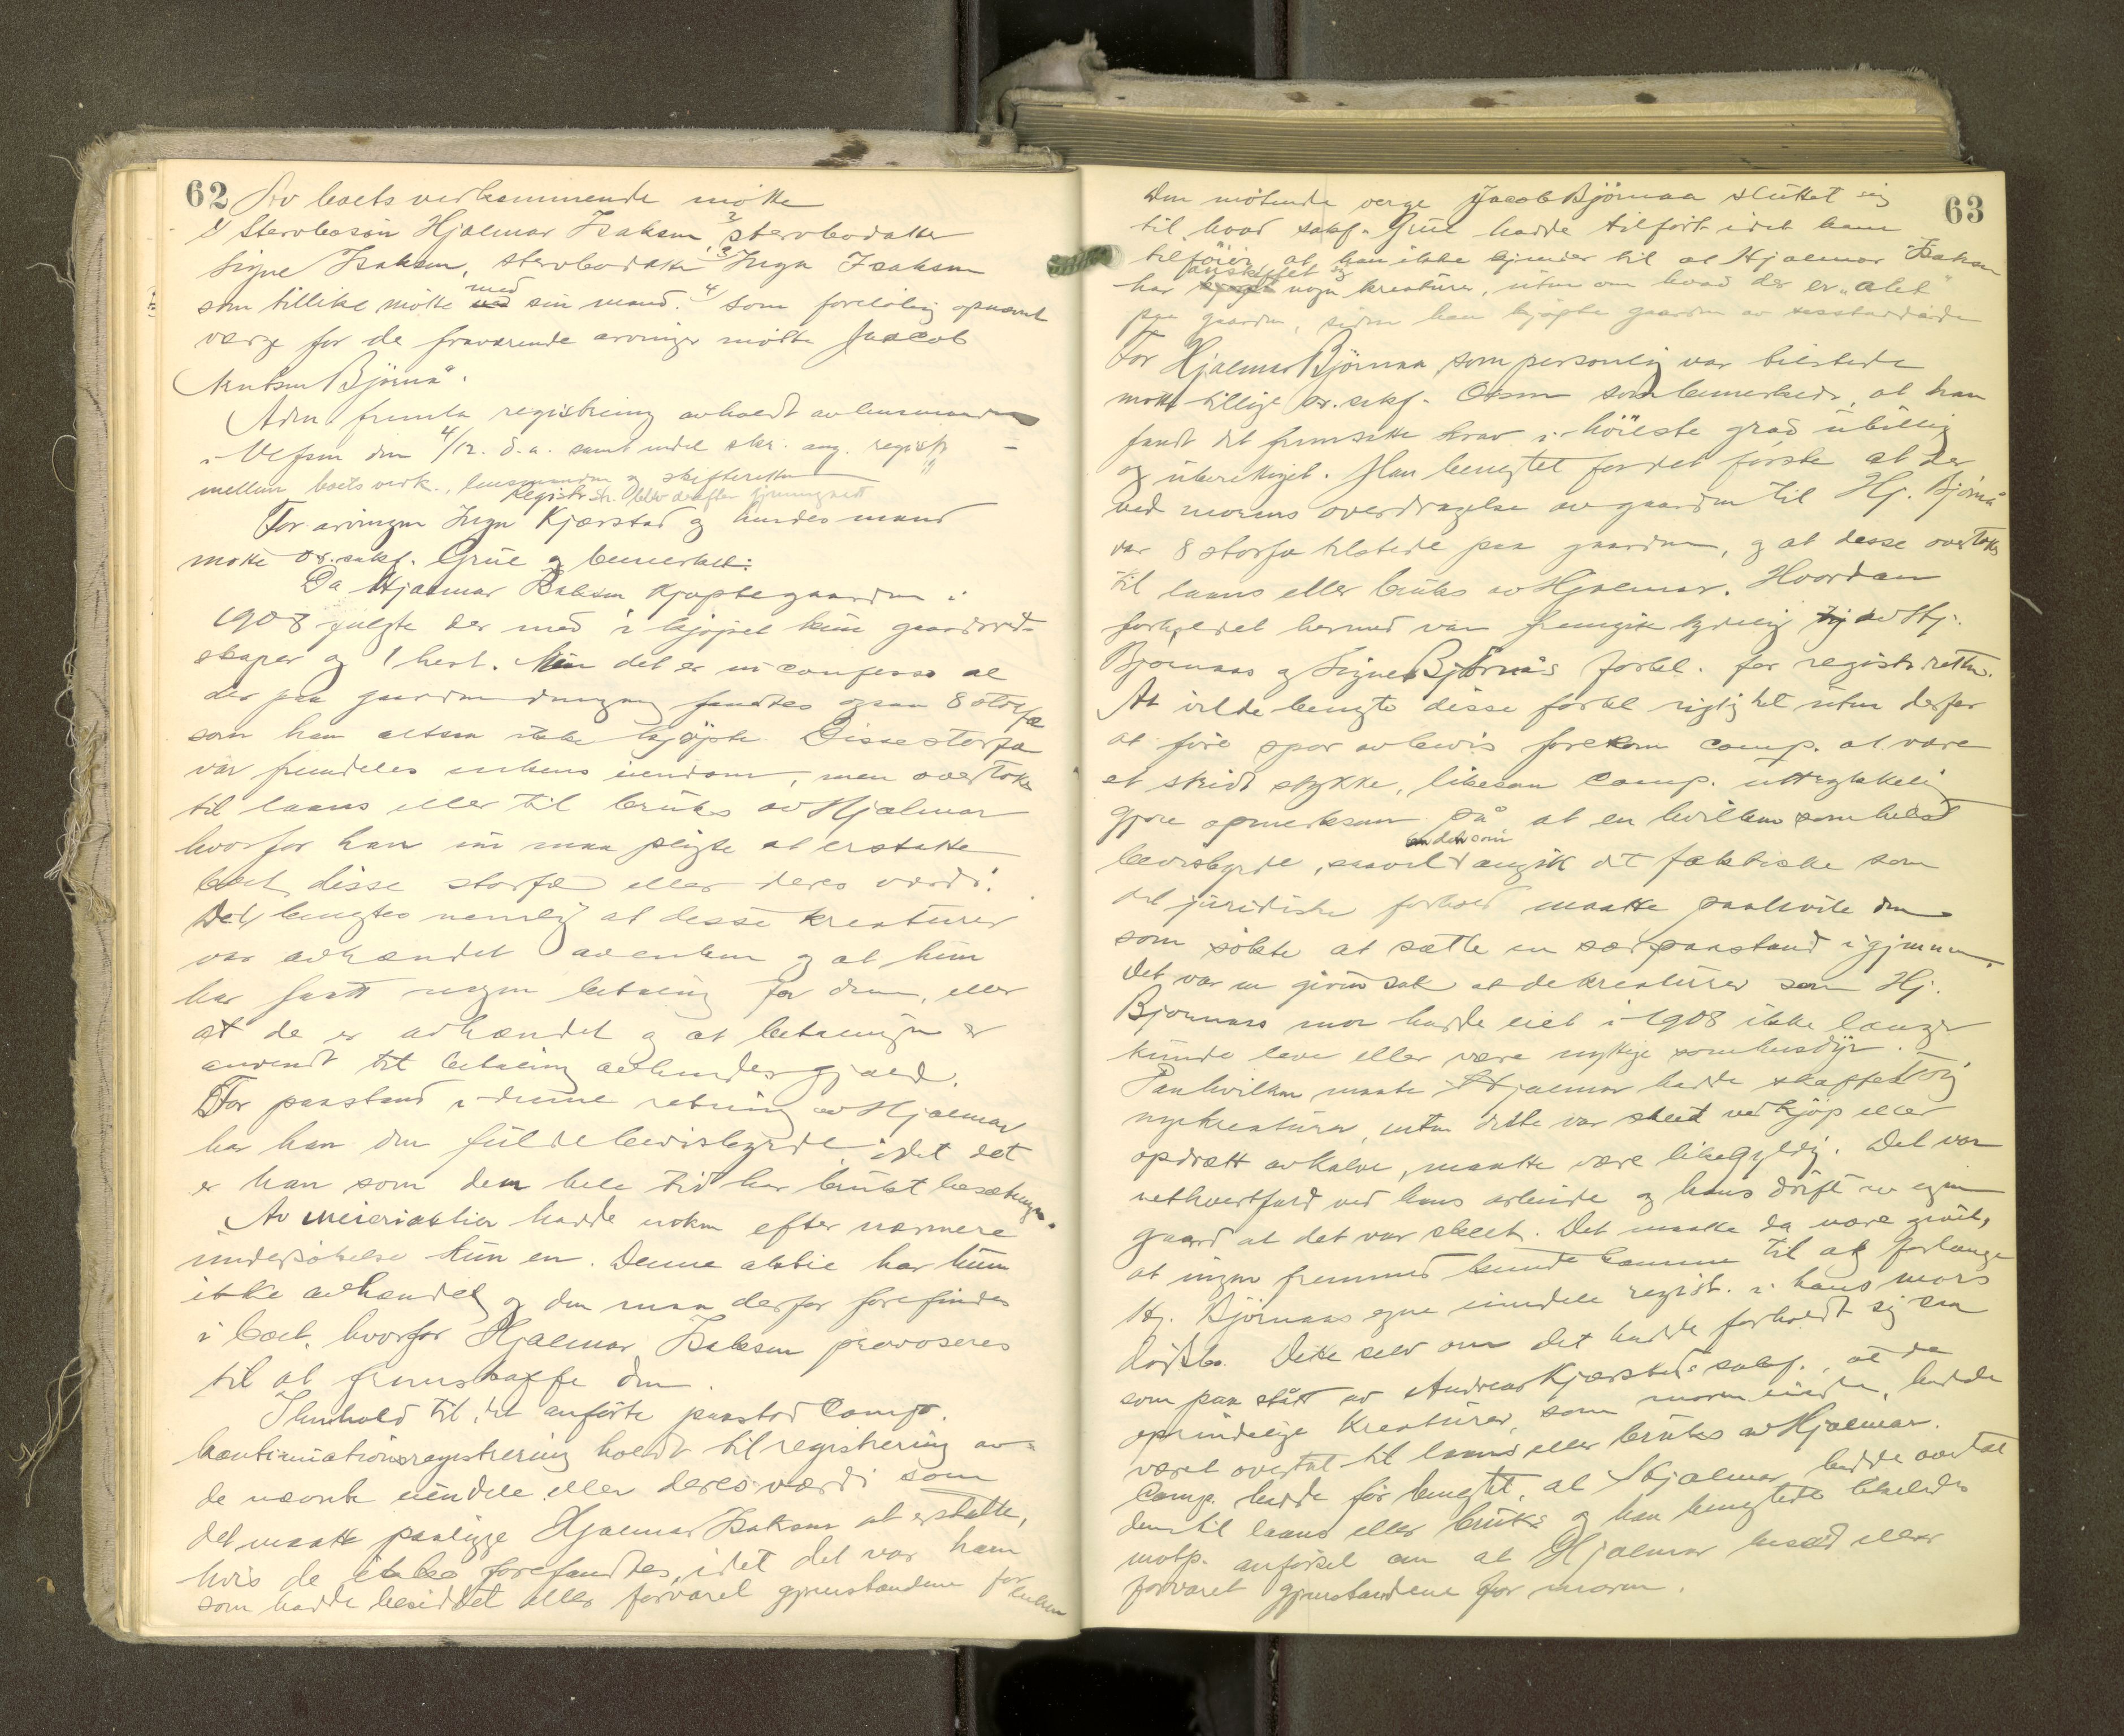 62 Av boets vedkommende mötte
1) Stervbosön Hjalmar Isaksen, 2 stervbodatter
Signe Isaksen, stervbodatter 3 Inga Isaksen
som tillike mötte med sin mand. 4 Som foreløbig opnævnt
verge for de fraværende arvinger mötte Jacob
Knutsen Björnå.
Aden fremla registrering avholdt av lensmanden
i Vefsn den 4/12. d.a. samt endel skr. ang. registr
mellem boets vedk., lensmanden og skifteretten
Registr. str. blev derefter gjennemgaatt
For arvingen Inga Kjærstad og hendes mand
møtte o.r.sakf. Grüe og bemerket:
Da Hjalmar Isaksen kjøpte gaarden i
1908 fulgte der med i kjøpet kun gaardsred-
skaper og 1 hest. Men det er in confesso at
der paa gaarden dengang fandtes ogsaa 8 storfæ
som han altsaa ikke kjøpte. Disse storfæ
var fremdeles enkens eiendom, men overtokes
til laans eller til bruks av Hjalmar
hvorfor han nu maa pligte at erstatte
boet disse storfæ eller deres værdi.
Det benegtes nemlig at desse kreaturer
var avhændet av enken og at hun
har faatt nogen betaling for dem, eller
at de er avhændet og at betalingen er
anvendt til betaling av hendes gjæld.
For paastand i denne retning av Hjalmar
har han den fulde bevisbyrde idet det
er han som den hele tid har brukt besætningen.
Av meieriaktier hadde enken efter nærmere
undersökelse kun en. Denne aktie har hun
ikke avhændet og den maa derfor forefindes
i boet, hvorfor Hjalmar Isaksen provoseres
til at fremskaffe den.
I henhold til det anförte paastod Comp.
kontinuationsregistrering holdt til registrering av
de nævnte eiendele eller deres værdi som
det maatte paaligge Hjalmar Isaksen at erstatte,
hvis de ikke forefandtes, idet det var ham
som hadde besiddet eller forvaret gjenstandene for
enken
63
Den mötende verge Jacob Björnaa sluttet sig
til hvad sakf. Grüe hadde tilfört idet han
tilföier, at han ikke kjender til at Hjalmar Isaksen
har anskaffet sig nogen kreaturer, uten om hvad der er "alet"
paa gaarden, siden han kjøpte gaarden av
For Hjalmar Björnaa som personlig var tilstede
mötte tillige o.r.sakf. Olsen som bemerkede, at han
fandt det fremsatte krav i höieste grad ubillig
og uberettiget. Han benegtet for det første at der
ved morens overdragelse av gaarden til Hj. Björnå
var 8 storfæ tilstede paa gaarden, og at desse overtokes
til laans eller bruks av Hjalmar. Hvordan
forholdet hermed var fremgik tydelig av Hj.
Björnaas og Signe Björnås forkl. for registr.retten.
At ville benegte disse forkl rigtighet uten derfor
at före spor av bevis forekom comp. at være
et stridt stykke, likesom comp. uttrykkelig
gjøre opmerksom på at en hvilken somhelst
bevisbyrde, saavel en den som angik det faktiske som
det juridiske forhold maatte paahvile den
som sökte at sætte en sær paastand igjennem.
Det var en given sak at de kreaturer som Hj.
Björnaas mor hadde eiet i 1908 ikke længer
kunde leve eller være nyttige som husdyr.
Paa hvilken maate Hjalmar hadde skaffet sig
nye kreaturer, enten dette var skeet ved kjöp eller
opdrætt av kalve, maatte være likegyldig. Det var
ved hans arbeide og hans drift av egen
gaard at det var skeet. Det maatte da være givet,
at ingen fremmed kunde komme til at forlange
Hj. Björnaas egne eiendele regist. i hans mors
dödsbo. Dette selv om det hadde forholdt sig saa
som paastått av Andreas Kjærstads sakf., at de
oprindelige kreaturer, som moren eiede, hadde
været overtat til laans eller bruks av Hjalmar.
Comp. hadde før benegtet, at Hjalmar hadde overtat
dem til laans eller bruks og han benegtede likeledes
motp. anförsel om at Hjalmar besad eller
forvaret gjenstandene for moren.